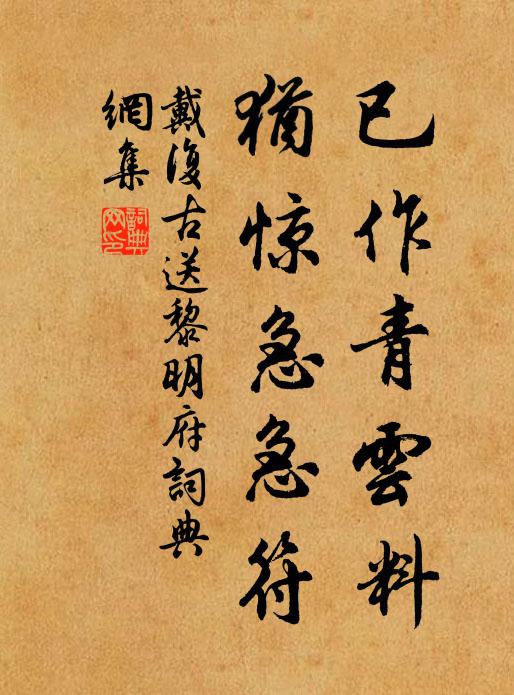 已作青雲料
猶惊急急符
戴復古送黎明府詞典
網集
詞典
网印